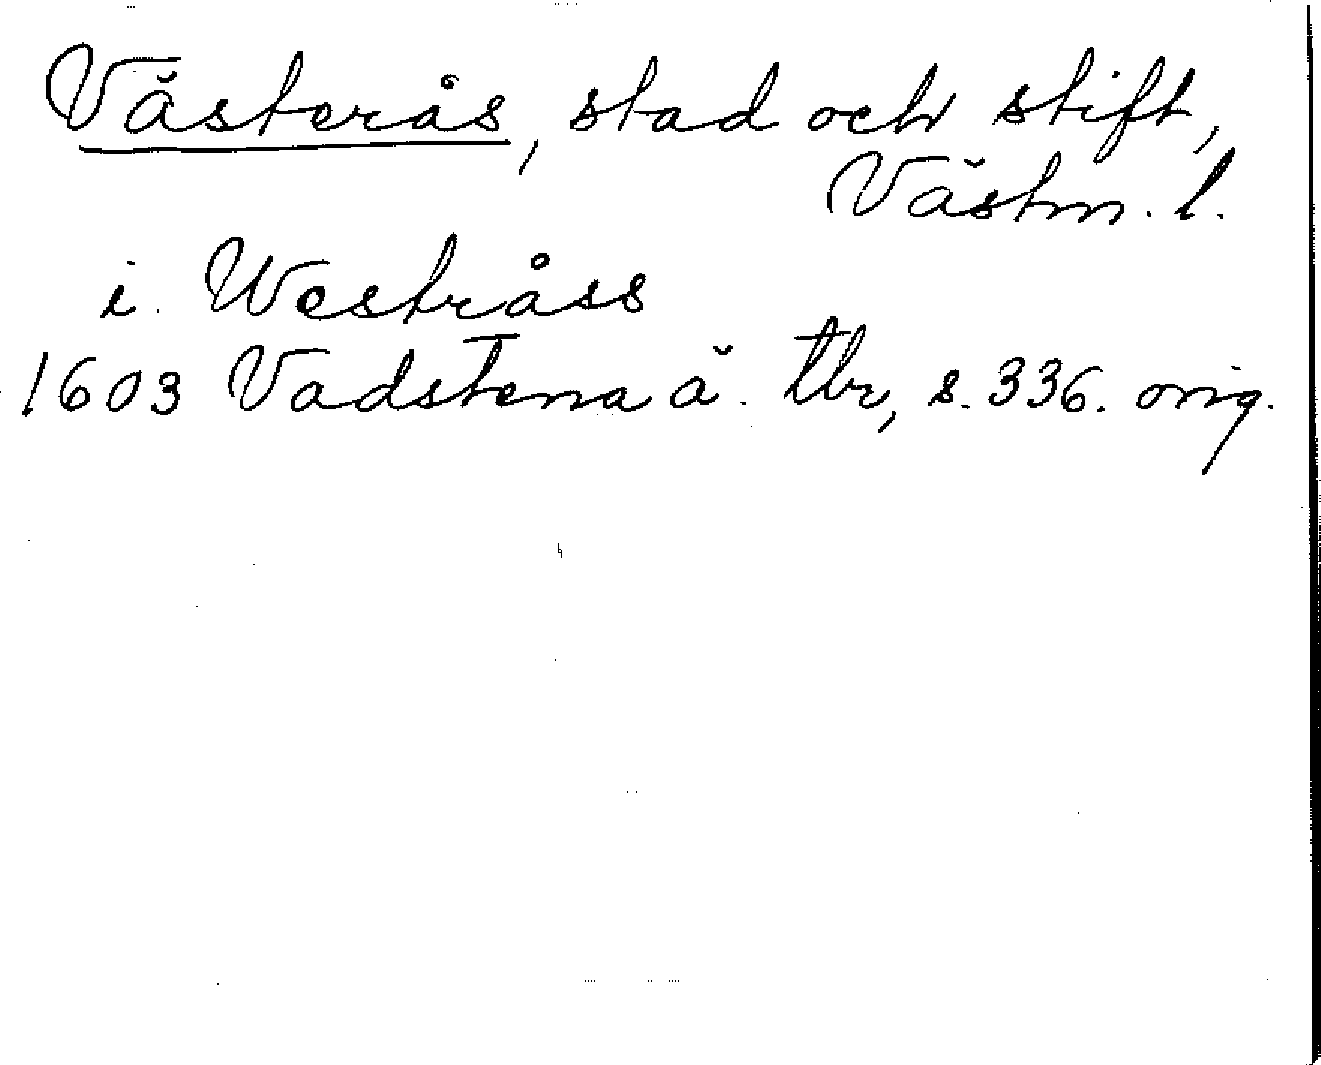 Västerås, stad och stift,
Västm. l.
i. Westråss
1603 Vadstena ä. tbr, s. 336. orig.